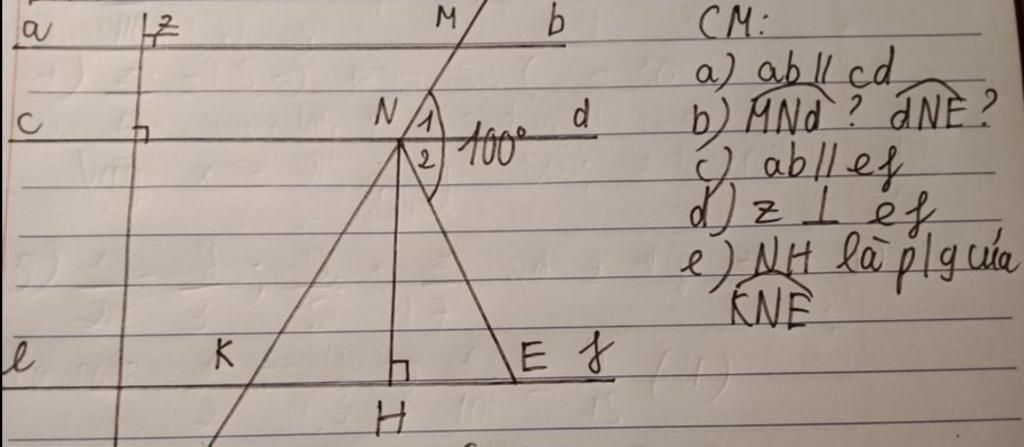 a z M b
CM:
a) ab // cd
c N 1 d
2 100°
b) MNd ? dNE ?
c) ab // ef
d) z ⊥ ef
e) NH là p/g của
KNE
e K E f
H